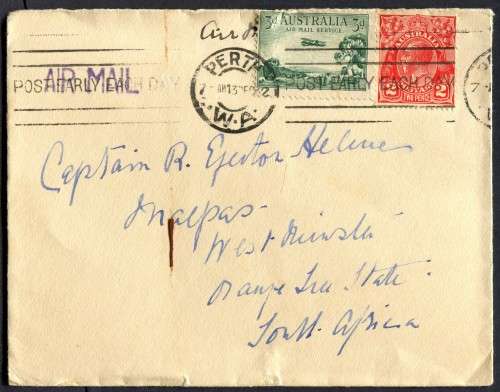 Air Mail
3d AUSTRALIA 3d
AIR MAIL SERVICE
AUSTRALIA
2 2
TWO PENCE
PERTH
W.A.
AIR MAIL
POST EARLY EACH DAY
POST EARLY EACH DAY
Captain R. Egerton Helme
Malpas
West Minster
Orange Free State
South Africa